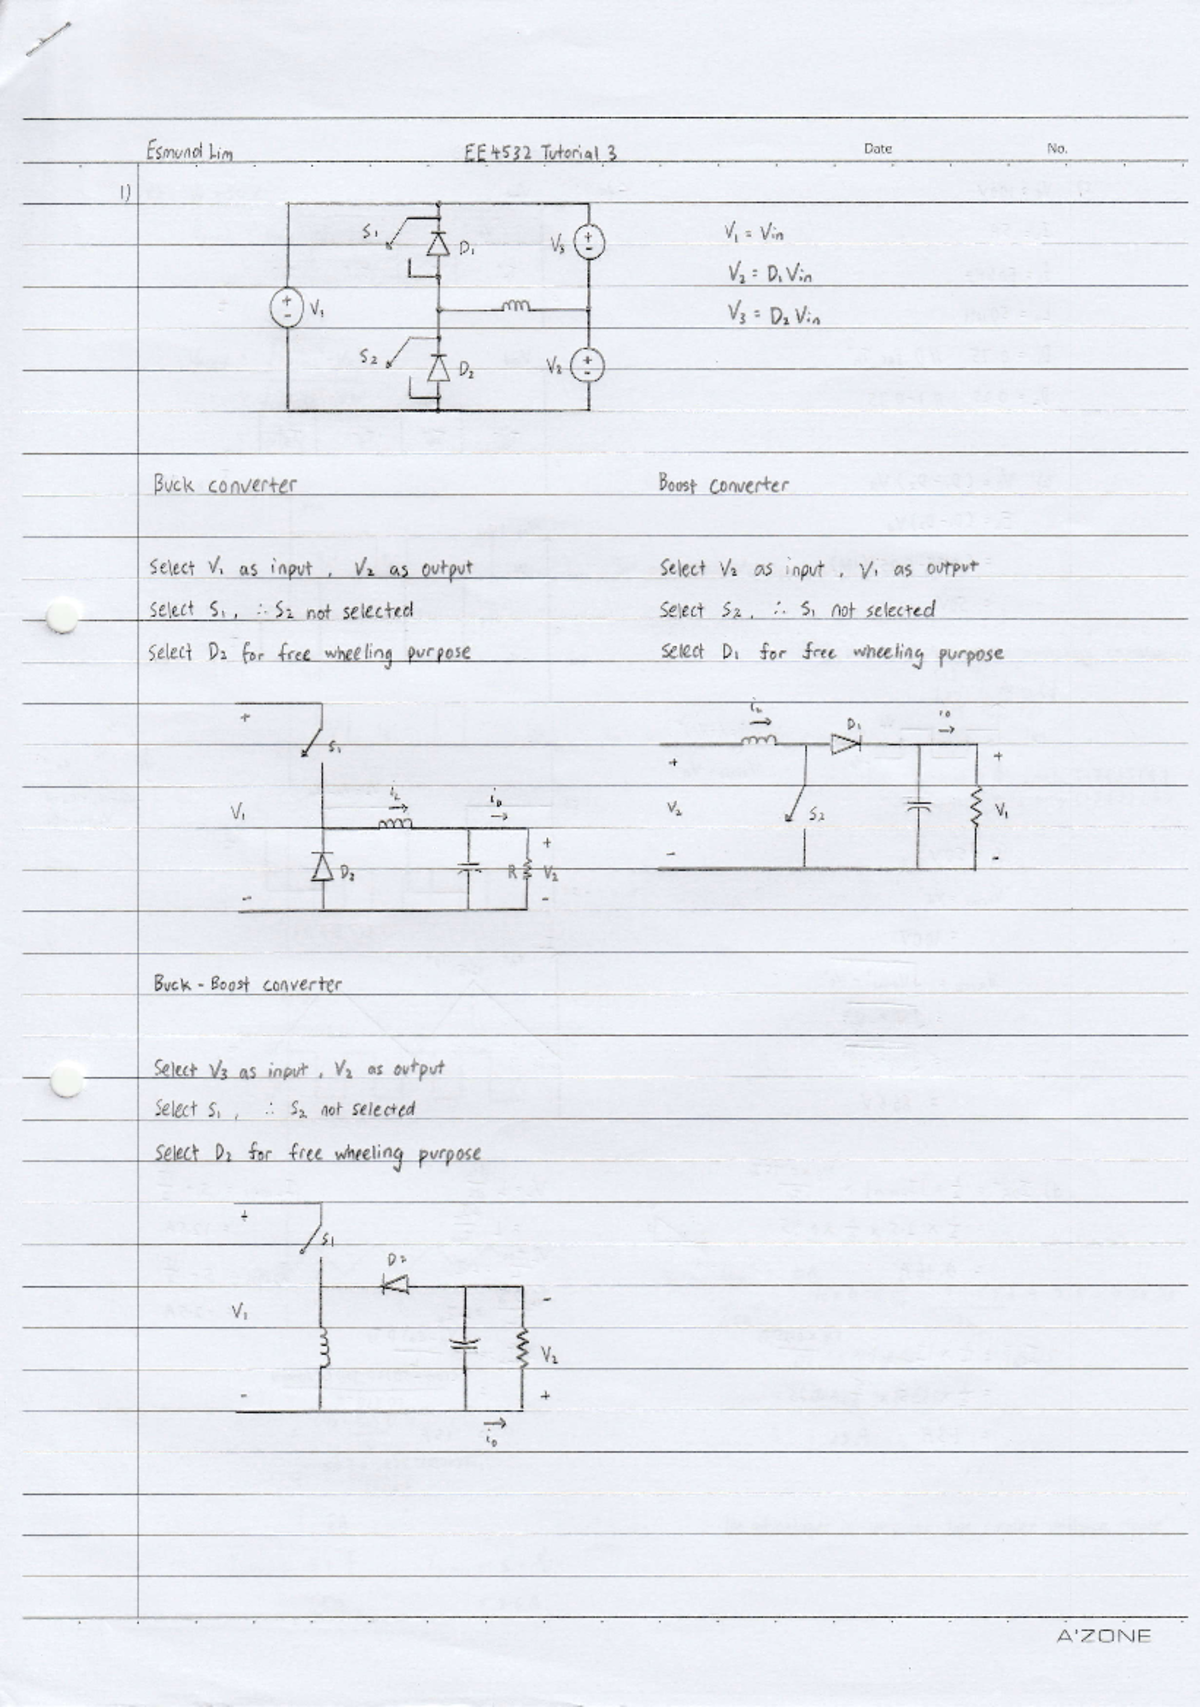 Esmund Lim EE4532 Tutorial 3 Date No.
1)
S1 D1 V3
V1
S2 D2 V2
V1 = Vin
V2 = D1 Vin
V3 = D2 Vin
Buck converter
Select V1 as input , V2 as output
Select S1 , ∴ S2 not selected
Select D2 for free wheeling purpose
+ S1
V1 iL i0
+
D2 R V2
- -
Boost Converter
Select V2 as input , V1 as output
Select S2 , ∴ S1 not selected
Select D1 for free wheeling purpose
iL D1 i0
+ +
V2 S2 V1
- -
Buck - Boost converter
Select V3 as input , V2 as output
Select S1 , ∴ S2 not selected
Select D2 for free wheeling purpose
+ S1
D2
V1 -
V2
- +
i0
A'ZONE